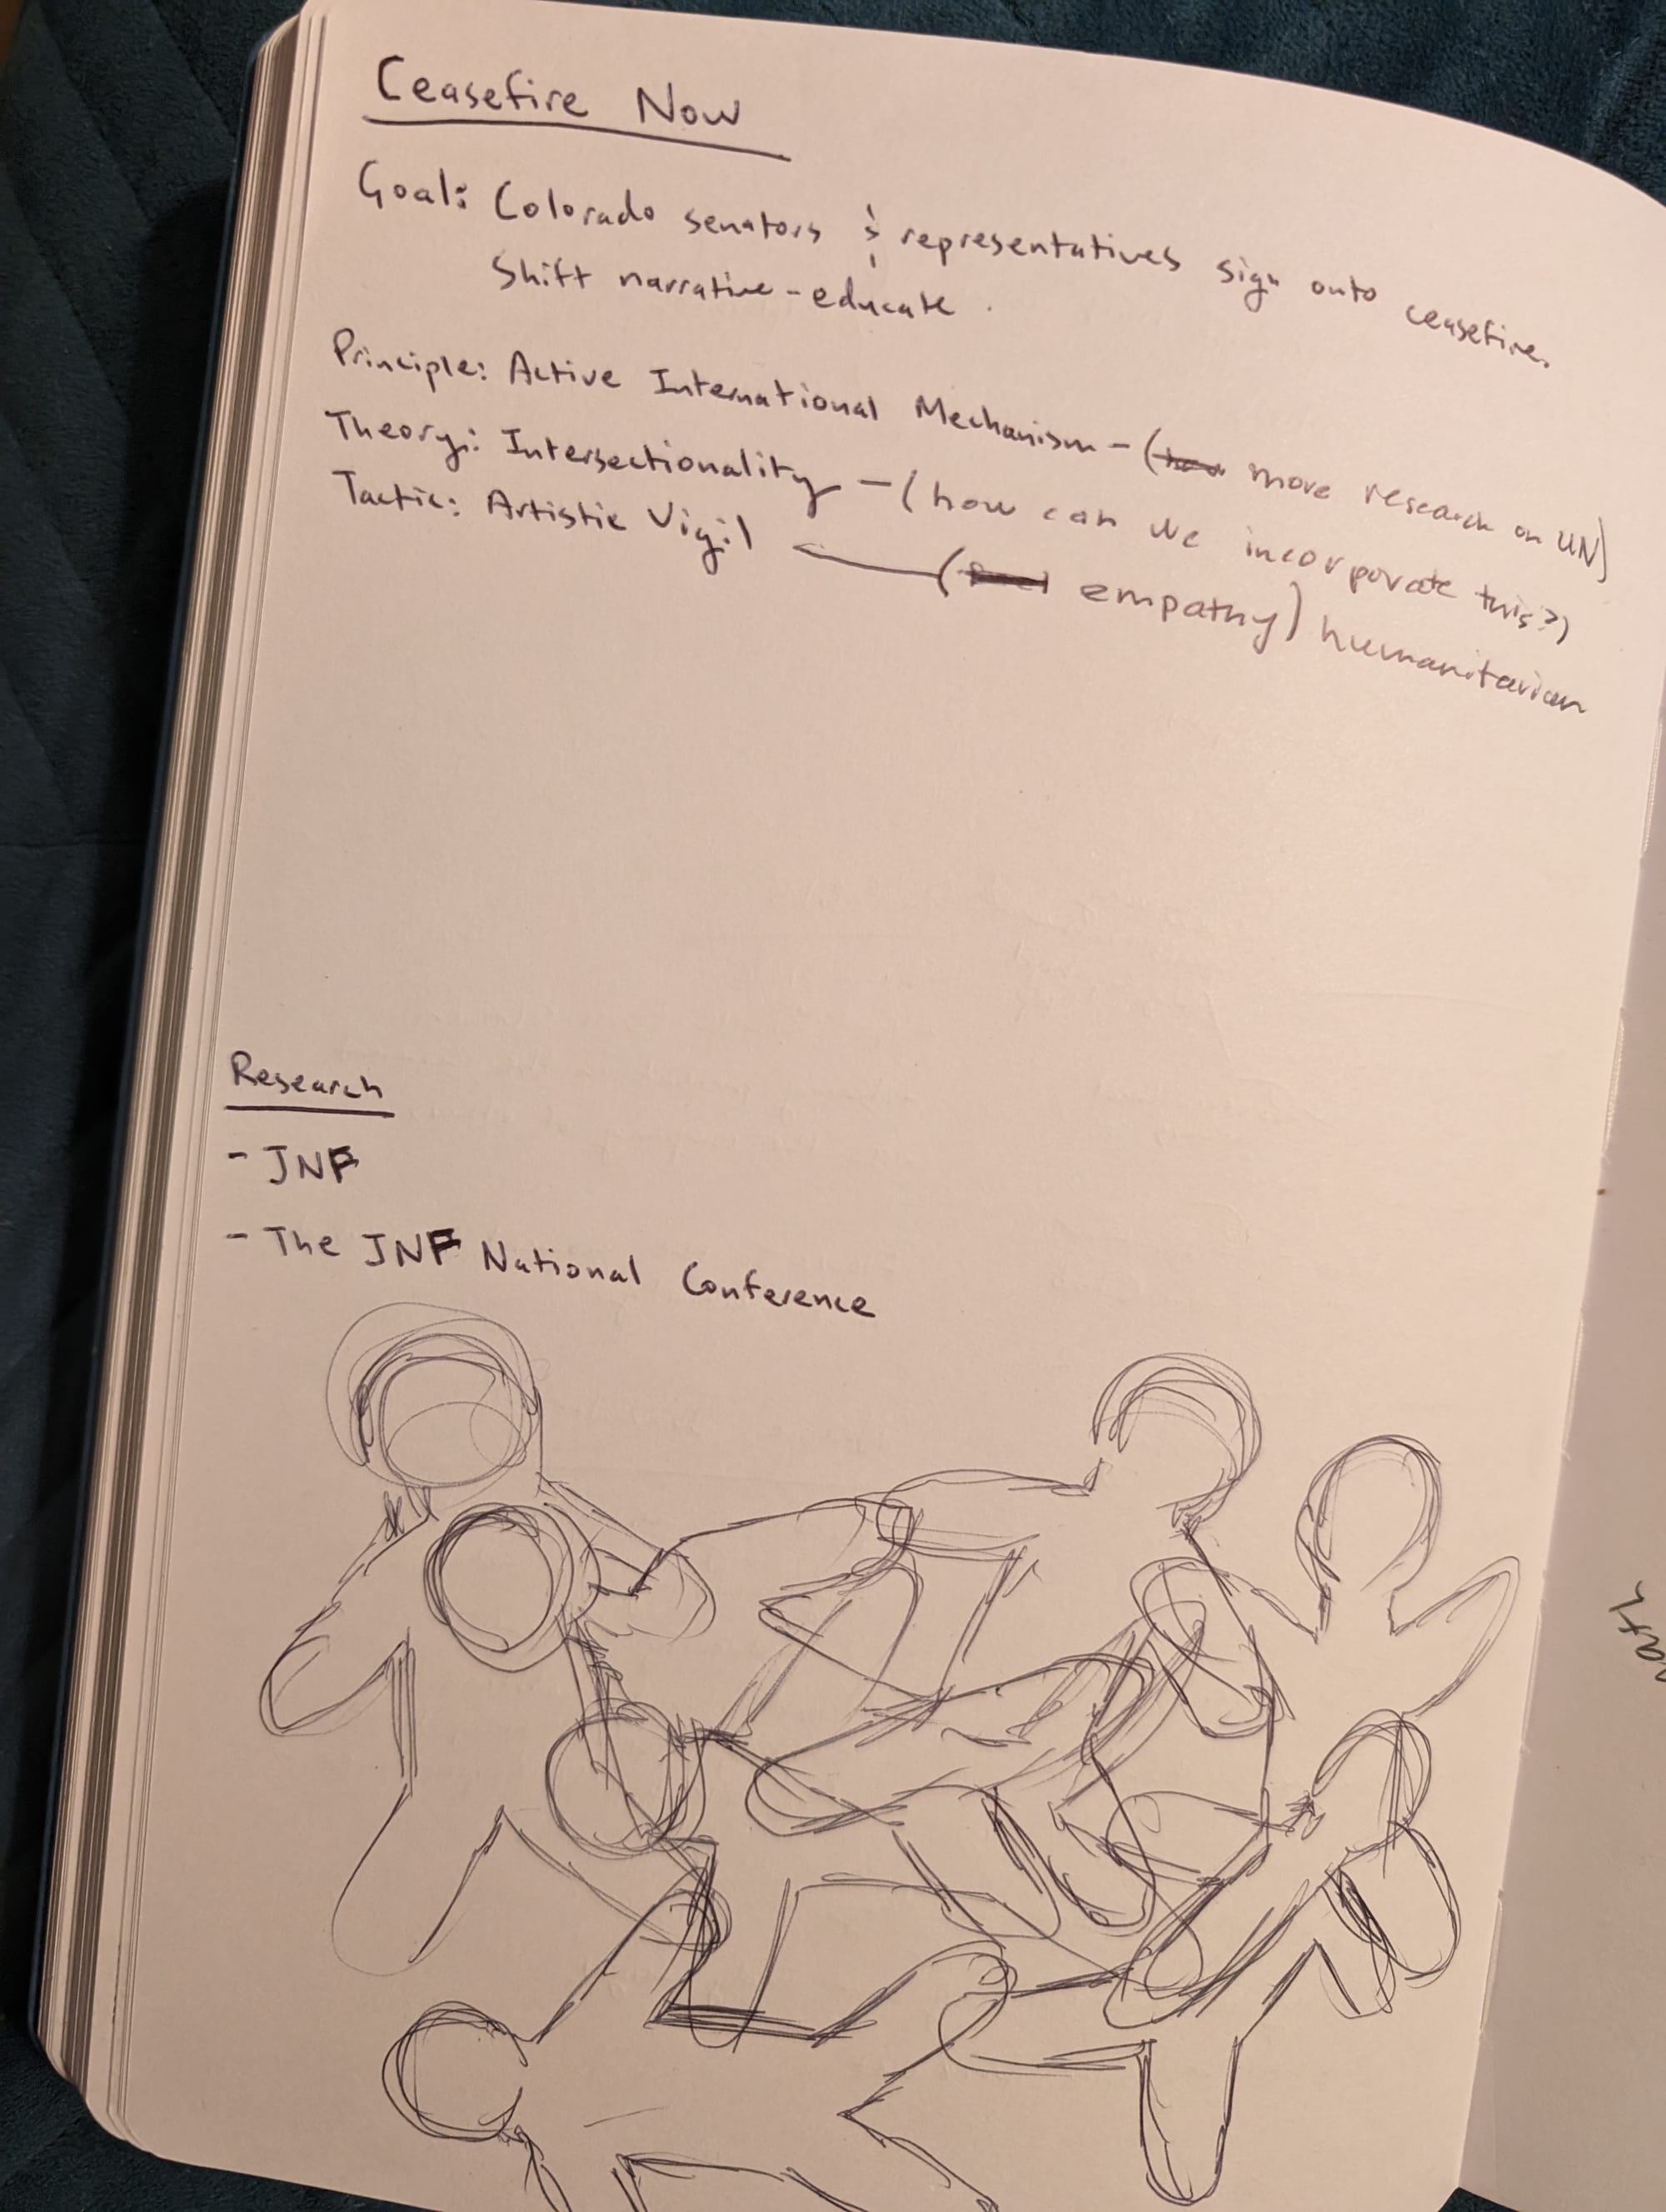 Ceasefire Now
Goal: Colorado senators & representatives sign onto ceasefire.
Shift narrative - educate.
Principle: Active International Mechanism - (more research on UN)
Theory: Intersectionality - (how can we incorporate this?)
Tactic: Artistic Vigil (empathy) humanitarian
Research
- JNF
- The JNF National Conference